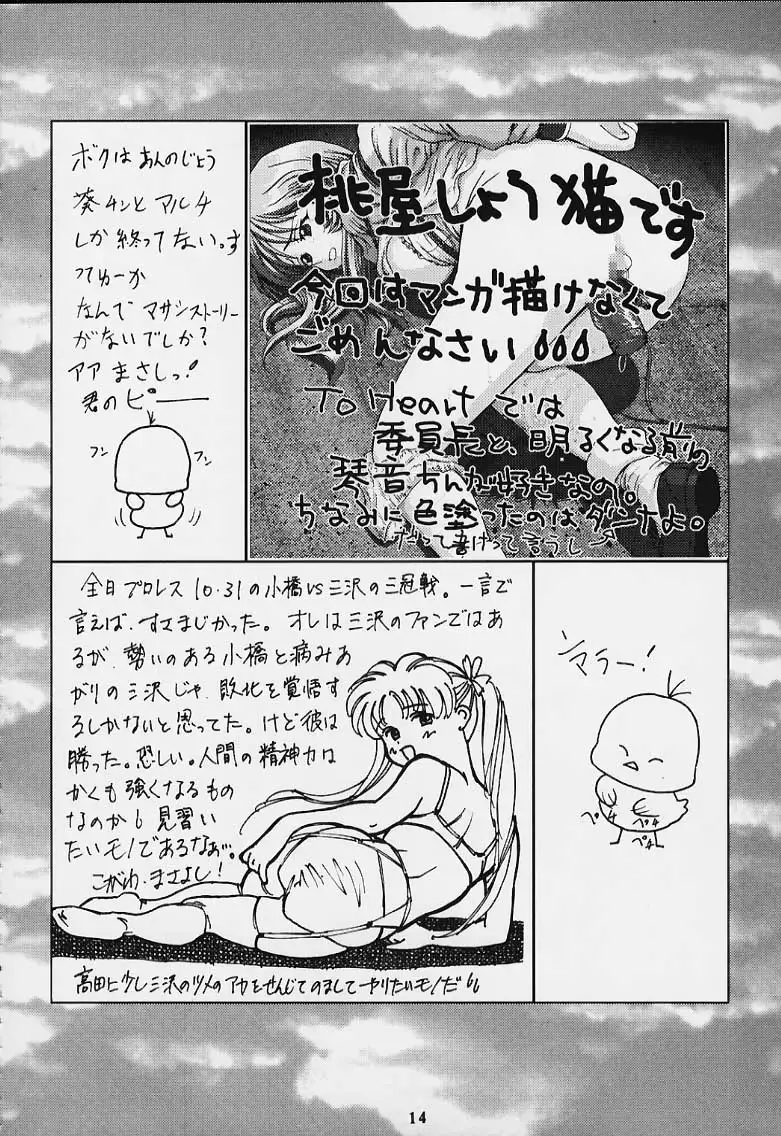 ボクはあんのじょう
葵チンとマルチ
しか終ってない。す
ってゆーか
なんで マサシストーリー
がないでしか?
アア まさしっ!
君のピ――
フン
フン
桃屋しょう猫です
今回はマンガ描けなくて
ごめんなさい
To Heartでは
委員長と、明るくなる前の
琴音ちんが好きなの。
ちなみに色塗ったのはダンナよ。
だって書けって言うし
全日プロレス10.31の小橋vs三沢の三冠戦。一言で
言えば、すさまじかった。オレは三沢のファンではあ
るが、勢いのある小橋と病みあ
がりの三沢じゃ、敗北を覚悟す
るしかないと思ってた。けど彼は
勝った。恐しい。人間の精神力は
かくも強くなるもの
なのか。見習い
たいモノであるなぁ…。
こがわ・まさよし!
高田に少し三沢のツメのアカをせんじてのましてやりたいモノだ
マラー!
ペチ
ペチ
ペチ
14